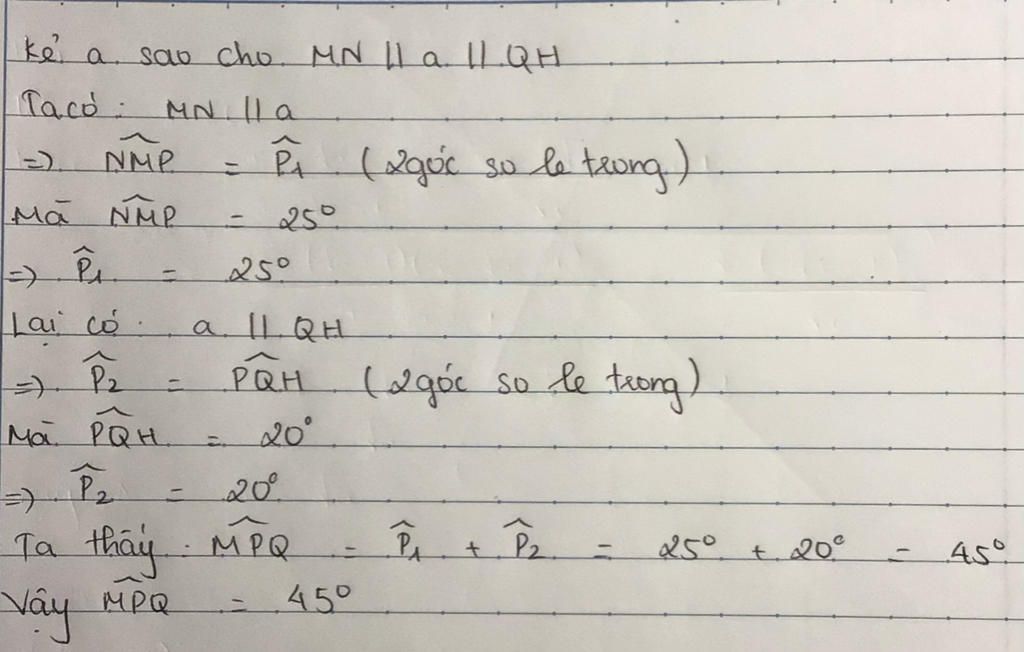 Kẻ a sao cho MN // a // QH
Ta có: MN // a
=> \widehat{NMP} = \widehat{P}₁ (2 góc so le trong)
Mà \widehat{NMP} = 25°
=> \widehat{P}₁ = 25°
Lại có: a // QH
=> \widehat{P}₂ = \widehat{PQH} (2 góc so le trong)
Mà \widehat{PQH} = 20°
=> \widehat{P}₂ = 20°
Ta thấy: \widehat{MPQ} = \widehat{P}₁ + \widehat{P}₂ = 25° + 20° = 45°
Vậy \widehat{MPQ} = 45°